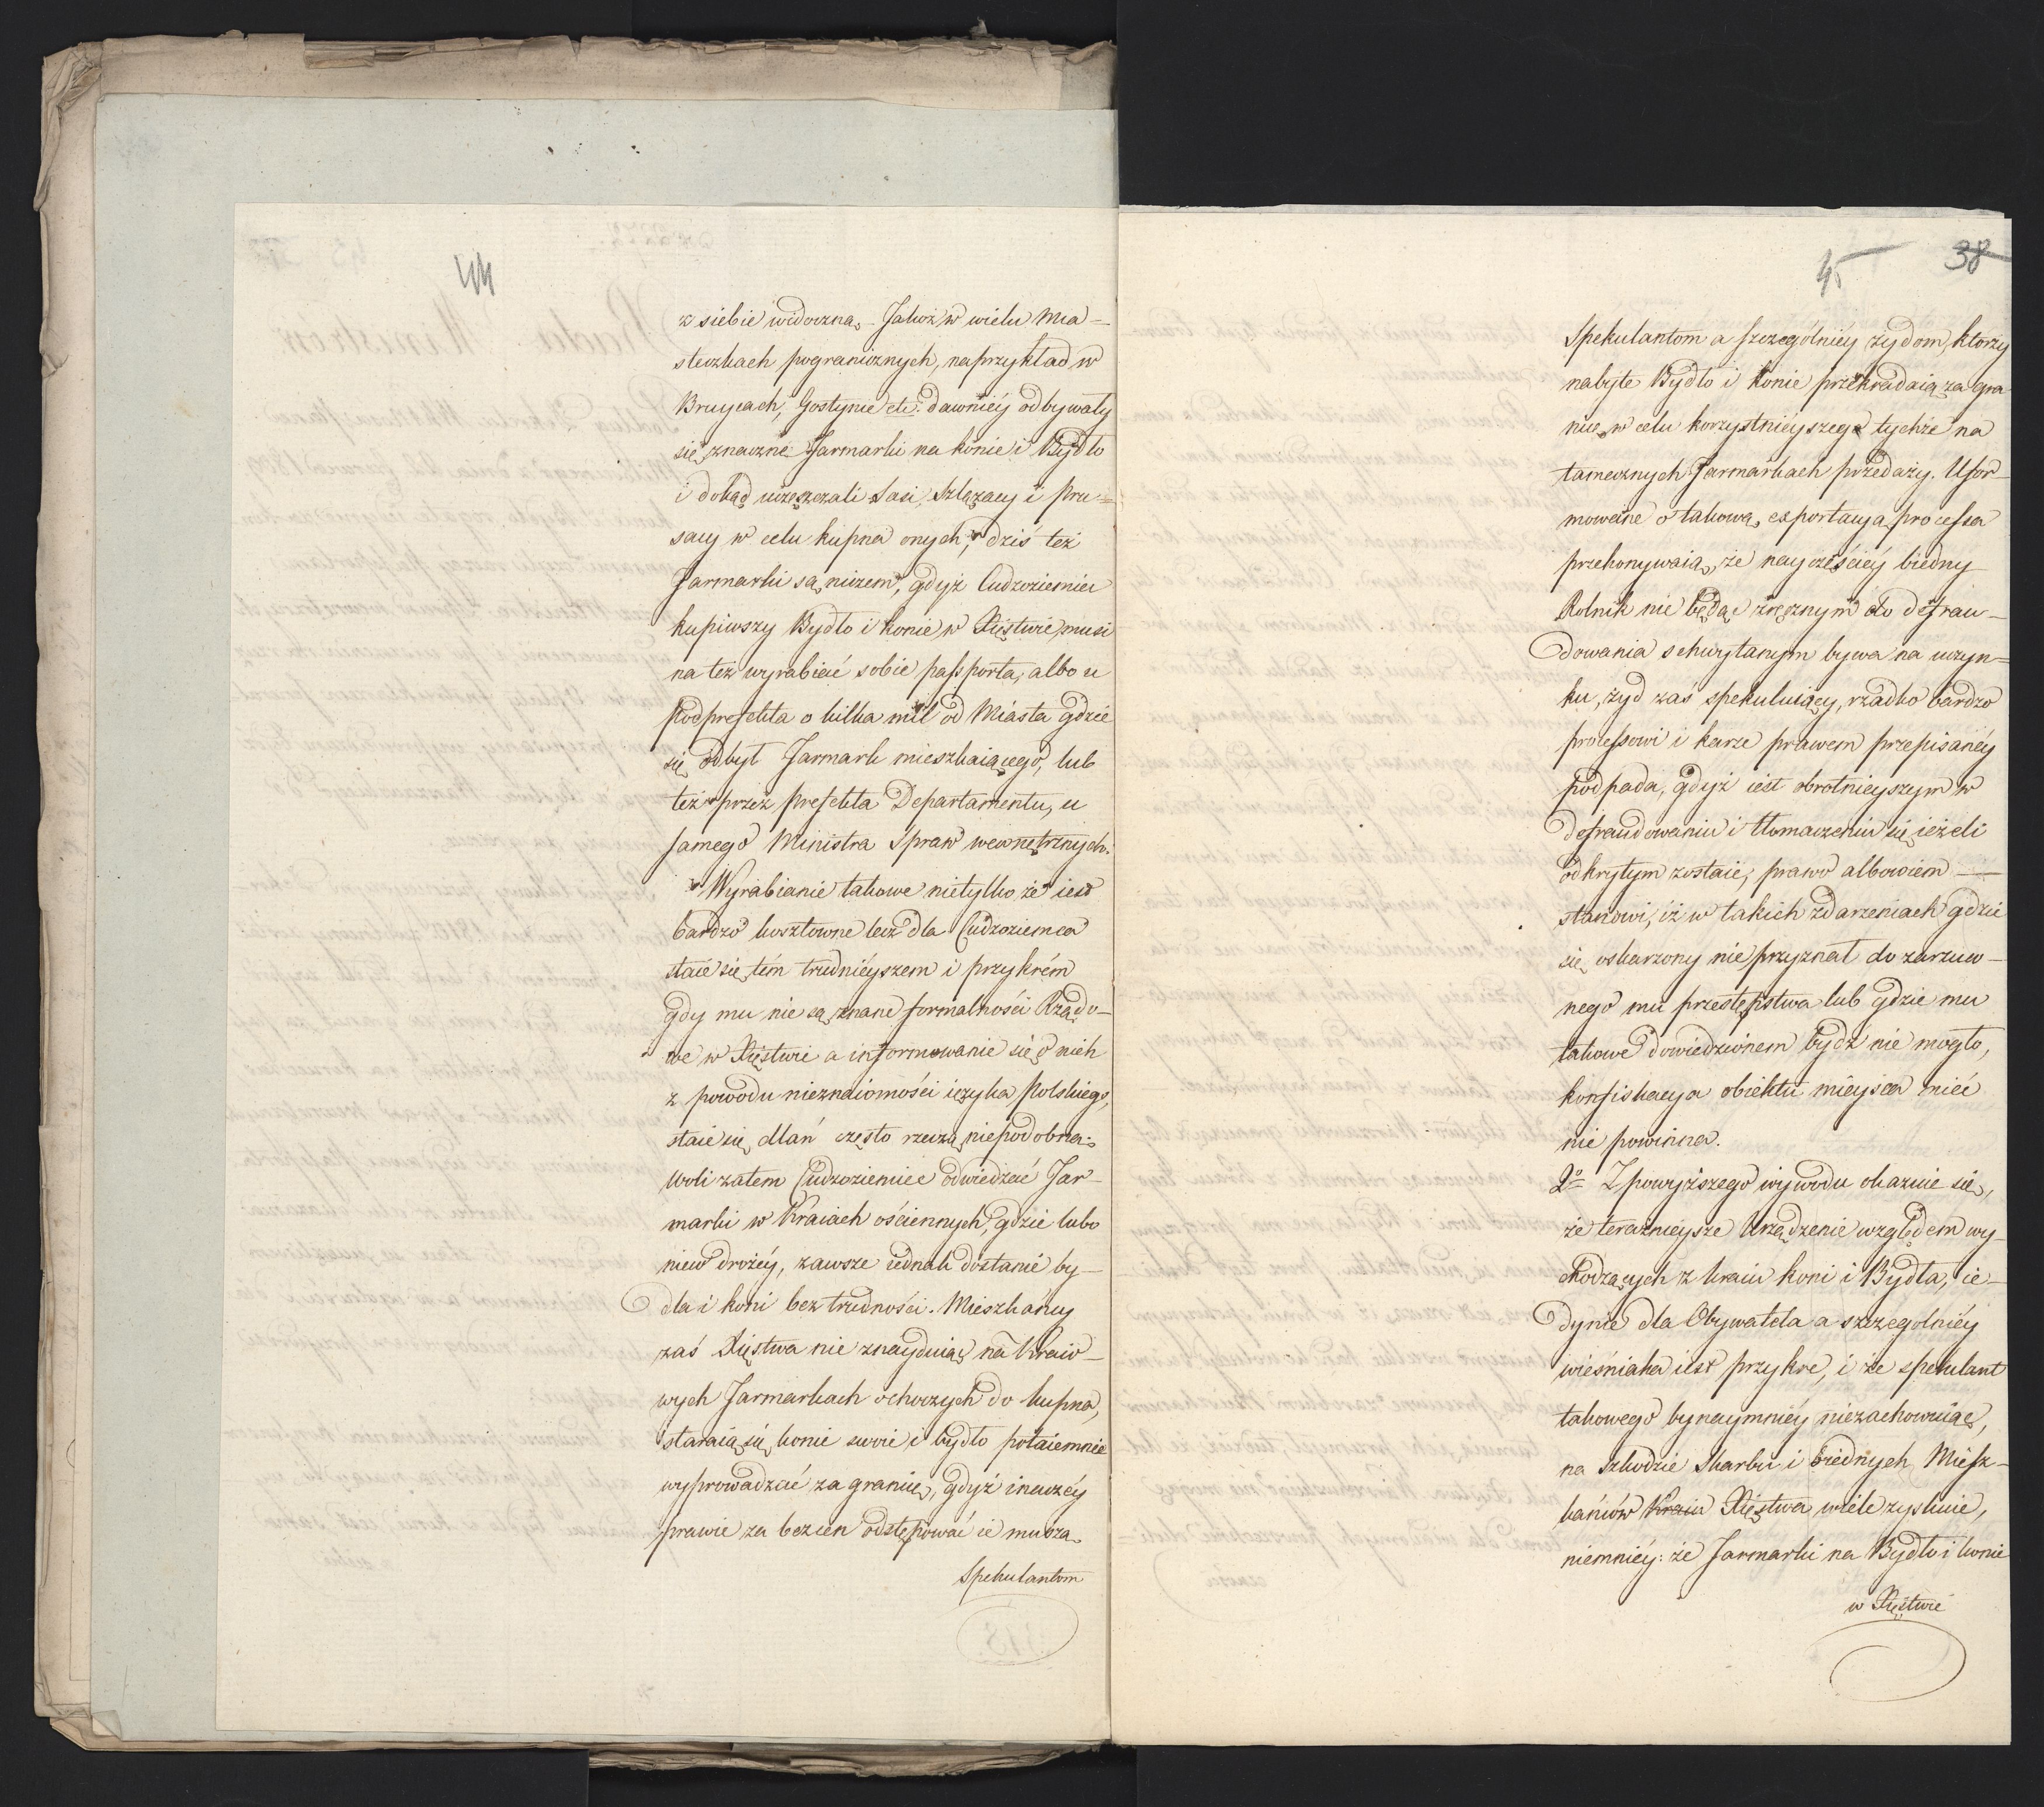 44
z siebie widoczną. Jakoż w wielu Mia-
steczkach pogranicznych, naprzykład w
Gostynie etc. dawniéy odbywały
się znaczne Jarmarki na konie i Bydło
i dokąd uczęszczali Sasi, Szlązacy i Pru-
sacy w celu kupna onych; dziś też
Jarmarki są niczem, gdyż Cudzoziemiec
kupiwszy Bydło i konie w Xięstwie, musi
na też wyrabiać sobie passporta, albo u
Podprefekta o kilka mil od Miasta gdzie
się odbył Jarmark mieszkaiącego, lub
też przez Prefekta Departamentu, u
samego Ministra Spraw wewnętrznych.
Wyrabianie takowe nietylko że iest
bardzo kosztowne lecz dla Cudzoziemca
staie się tém trudnieyszem i przykrém
gdy mu nie są znane formalności Rządo-
we w Xięstwie a informowanie się o nich
z powodu nieznaiomości ięzyka Polskiego,
staie się dlań często rzeczą niepodobną.
Woli zatem Cudzoziemiec odwiedzać Jar-
marki w Kraiach ościennych, gdzie lubo
nieco drożéy, zawsze iednak dostanie by-
dła i koni bez trudności. Mieszkańcy
zaś Xięstwa nie znayduiąc na Kraio-
wych Jarmarkach ochoczych do kupna,
staraią się konie swoie i bydło potaiemnie
wyprowadzać za granicę, gdyż inaczéy
prawie za bezcen odstępować ie muszą
Spekulantom
45 38
Spekulantom a szczególniéy żydom, którzy
nabyte Bydło i konie przekradaią za gra
nicę w celu korzystnieyszego tychże na
tamecznych Jarmarkach przedaży. Ufor-
mowane o takową exportacyą processa
przekonywaią, że nayczęściéy biedny
Rolnik nie będąc zręcznym do defrau-
dowania schwytanym bywa na uczyn-
ku, żyd zaś spekuluiący, rzadko bardzo
processowi i karze prawem przepisanéy
podpada, gdyż iest obrotnieyszym w
defraudowaniu i tłomaczeniu się ieżeli
odkrytym zostaie; prawo albowiem
stanowi, iż w takich zdarzeniach gdzie
się oskarzony nie przyznał do zarzuco-
nego mu przestępstwa lub gdzie mu
takowe dowiedzionem bydź nie mogło,
konfiskacya obiektu mieysca mieć
nie powinna.
2º Z powyższego wywodu okazuie się,
że teraznieysze Urządzenie względem wy-
chodzących z kraiu koni i Bydła, ie-
dynie dla Obywatela a szczególniéy
wieśniaka iest przykre, i że spekulant
takowego bynaymniéy niezachowuiąc,
na szkodzie Skarbu i biednych Miesz-
kańców Kraiu Xięstwa wiele zyskuie,
niemniéy: że Jarmarki na Bydło i konie
w Xięstwie